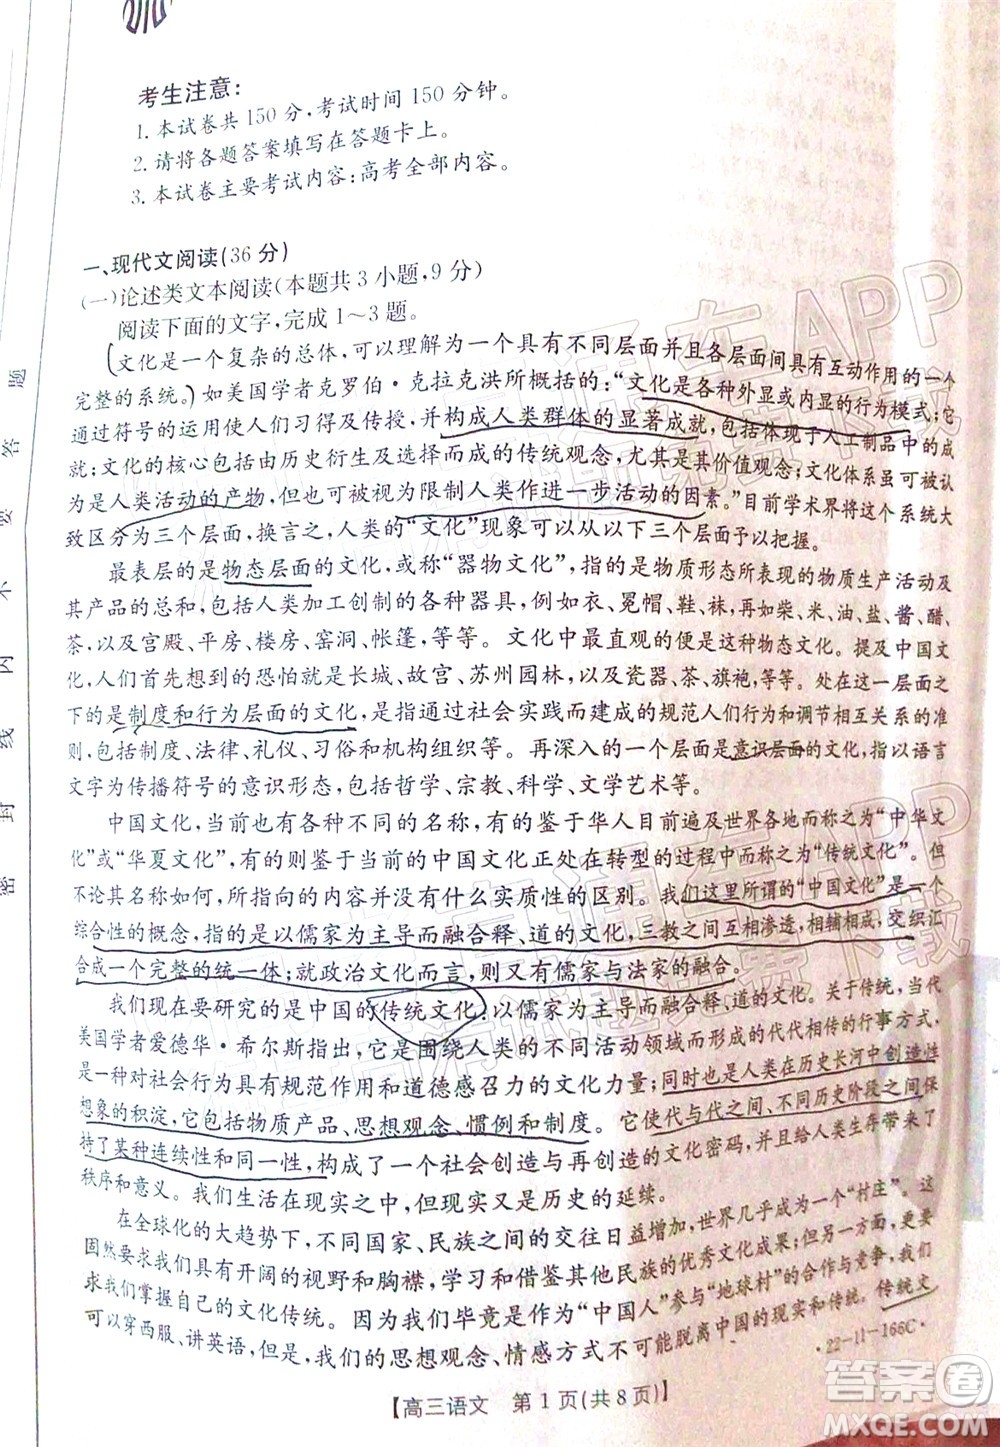 考生注意:
1.本试卷共150分,考试时间150分钟。
2.请将各题答案填写在答题卡上。
3.本试卷主要考试内容:高考全部内容。
一、现代文阅读(36分)
(一)论述类文本阅读(本题共3小题,9分)
阅读下面的文字,完成1~3题。
文化是一个复杂的总体,可以理解为一个具有不同层面并且各层面间具有互动作用的
完整的系统。如美国学者克罗伯·克拉克洪所概括的:“文化是各种外显或内显的行为模式;它
通过符号的运用使人们习得及传授,并构成人类群体的显著成就,包括体现于人工制品中的成
就;文化的核心包括由历史衍生及选择而成的传统观念,尤其是其价值观念;文化体系虽可被认
为是人类活动的产物,但也可被视为限制人类作进一步活动的因素。”目前学术界将这个系统大
致区分为三个层面,换言之,人类的“文化”现象可以从以下三个层面予以把握。
最表层的是物态层面的文化,或称“器物文化”,指的是物质形态所表现的物质生产活动及
其产品的总和,包括人类加工创制的各种器具,例如衣、冕帽、鞋、袜,再如柴、米、油、盐、酱、醋、
茶,以及宫殿、平房、楼房、窑洞、帐篷,等等。文化中最直观的便是这种物态文化。提及中国文
化,人们首先想到的恐怕就是长城、故宫、苏州园林,以及瓷器、茶、旗袍,等等。处在这一层面之
下的是制度和行为层面的文化,是指通过社会实践而建成的规范人们行为和调节相互关系的准
则,包括制度、法律、礼仪、习俗和机构组织等。再深入的一个层面是意识层面的文化,指以语言
文字为传播符号的意识形态,包括哲学、宗教、科学、文学艺术等。
中国文化,当前也有各种不同的名称,有的鉴于华人目前遍及世界各地而称之为“中华文
化”或“华夏文化”,有的则鉴于当代的中国文化正处在转型的过程中而称之为“传统文化”。但
不论其名称如何,所指的对象都没有什么实质性的区别。我们这里所谓的“中国文化”是一个
综合性的概念,指的是以儒家为主导而融合释、道的文化,三教之间互相渗透,相辅相成,交织汇
合成一个完整的统一体;就政治文化而言,则又有儒家与法家的融合。
我们现在要研究的是中国的传统文化,以儒家为主导而融合释、道的文化。关于传统,当代
美国学者爱德华·希尔斯指出,它是围绕人类的不同活动领域而形成的代代相传的行事方式,
是一种对社会行为具有规范作用和道德感召力的文化力量;同时也是人类在历史长河中创造性
想象的积淀,它包括物质产品、思想观念、惯例和制度。它使代与代之间、不同历史阶段之间保
持了某种连续性和同一性,构成了一个社会创造与再创造的文化密码,并且给人类生存带来了
秩序和意义。我们生活在现实之中,但现实又是历史的延续。
在全球化的大趋势下,不同国家、民族之间的交往日益增加,世界几乎成为一个“村庄”。这
固然要求我们具有开阔的视野和胸襟,学习和借鉴其他民族的优秀文化成果;另一方面,又更要
求我们掌握自己的文化传统。因为我们毕竟是作为“中国人”参与“地球村”的合作与竞争,我们
可以穿西服、讲英语,但是,我们的思想观念、情感方式不可能脱离中国的现实和传统。传统文
·22-11-166C·
【高三语文　第1页(共8页)】
密 封 线 内 不 要 答 题
答案圈
MXQE.COM